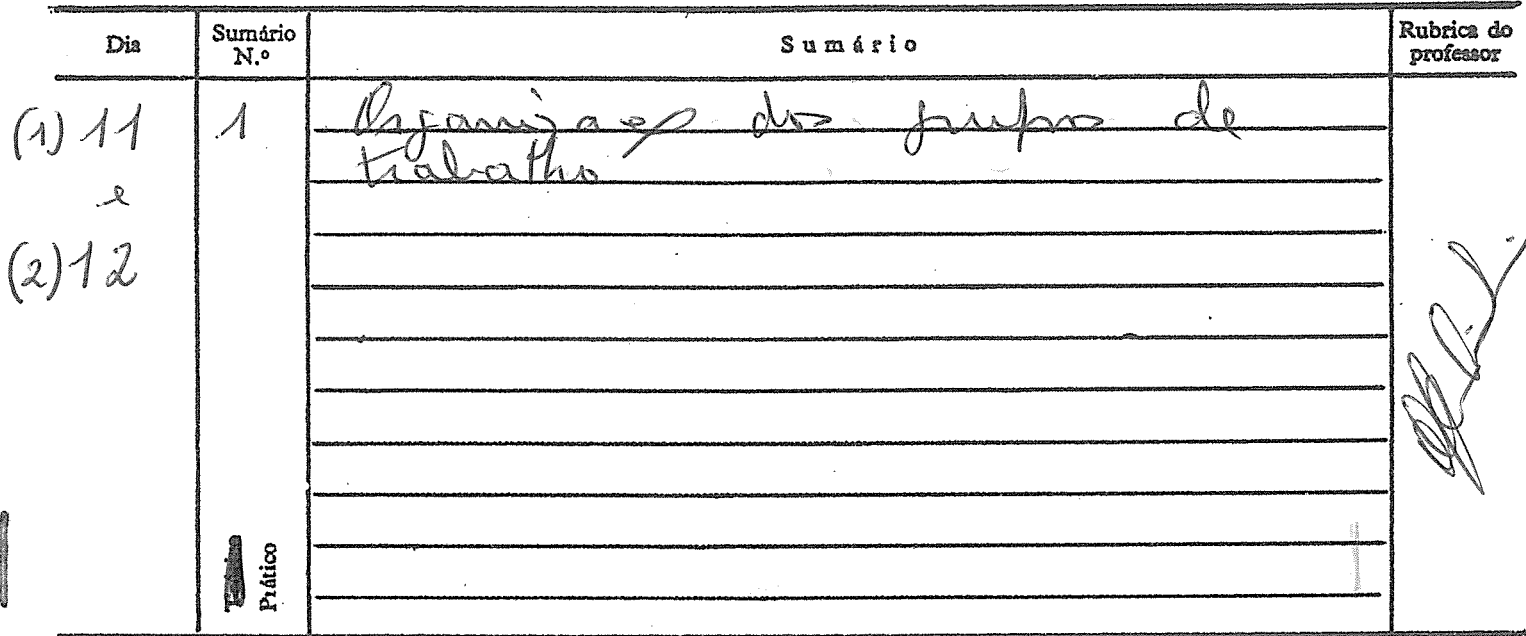 Dia
Sumário N.º
Sumário
Rubrica do professor
(1) 11
e
(2) 12
1
Organização dos grupos de
trabalho
Prático